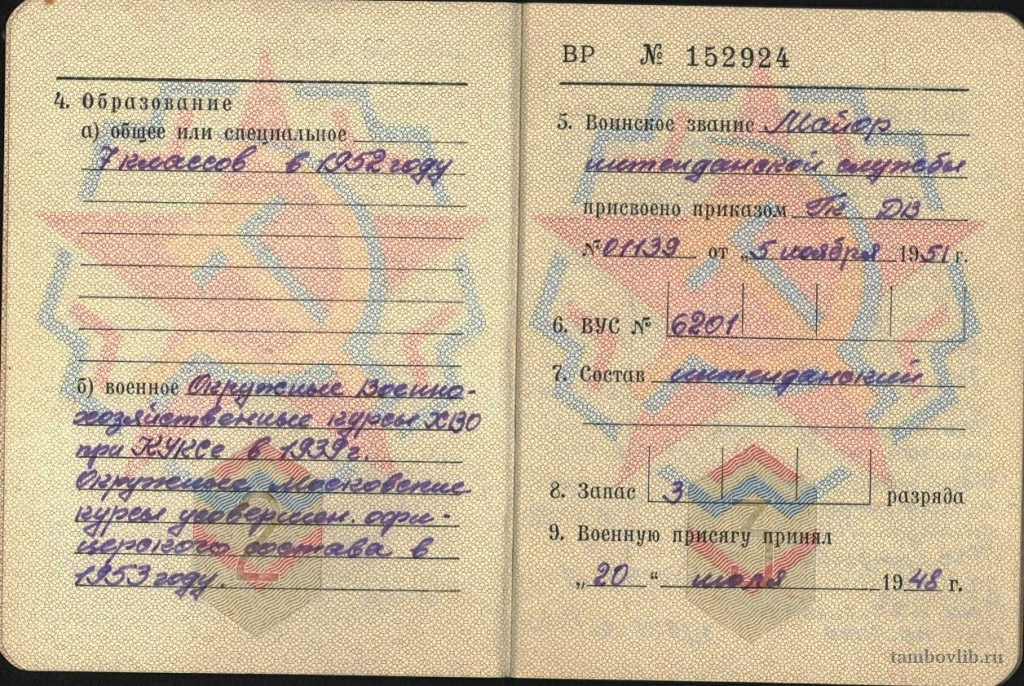 4. Образование
а) общее или специальное
7 классов в 1952 году
б) военное Окружные Военно-
хозяйственные курсы ХВО
при КУКСе в 1939 г.
Окружные Московские
курсы усовершен. офи-
церского состава в
1953 году.
ВР № 152924
5. Воинское звание Майор
интенданской службы
присвоено приказом Гк ДВ
№ 01139 от „5 ноября 1951 г.
6. ВУС № 6201
7. Состав интенданский
8. Запас 3 разряда
9. Военную присягу принял
„20 “ июля 1948 г.
tambovlib.ru